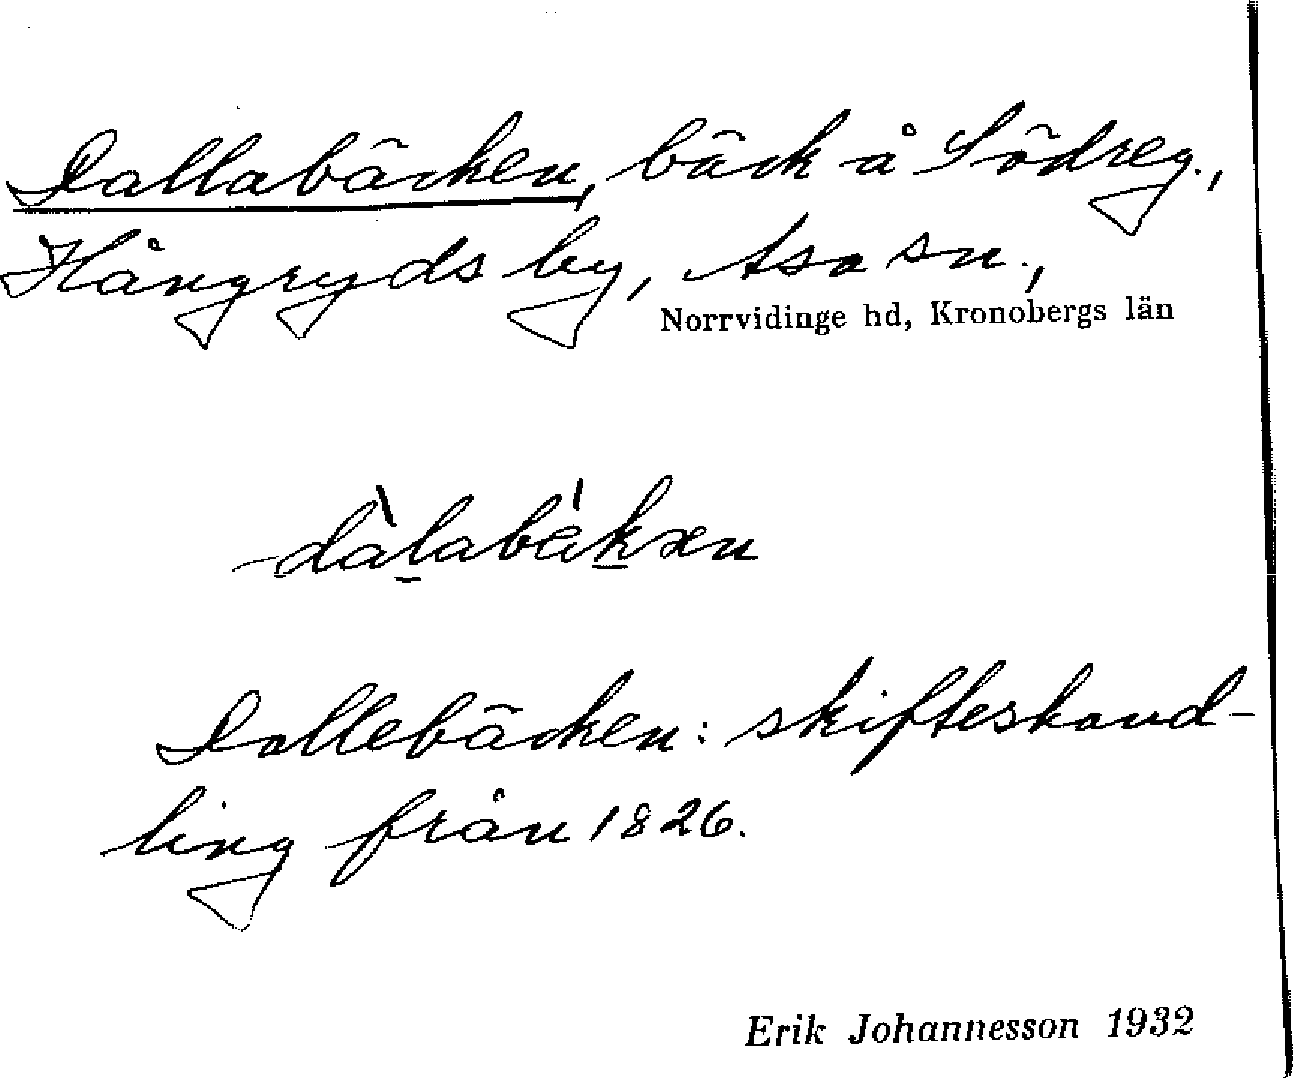 Dallabäcken, bäck å Södreg.,
Hångryds by, Asa sn.,
Norrvidinge hd, Kronobergs län
dàlabäkæn
Dallebäcken: skifteshand-
ling från 1826.
Erik Johannesson 1932